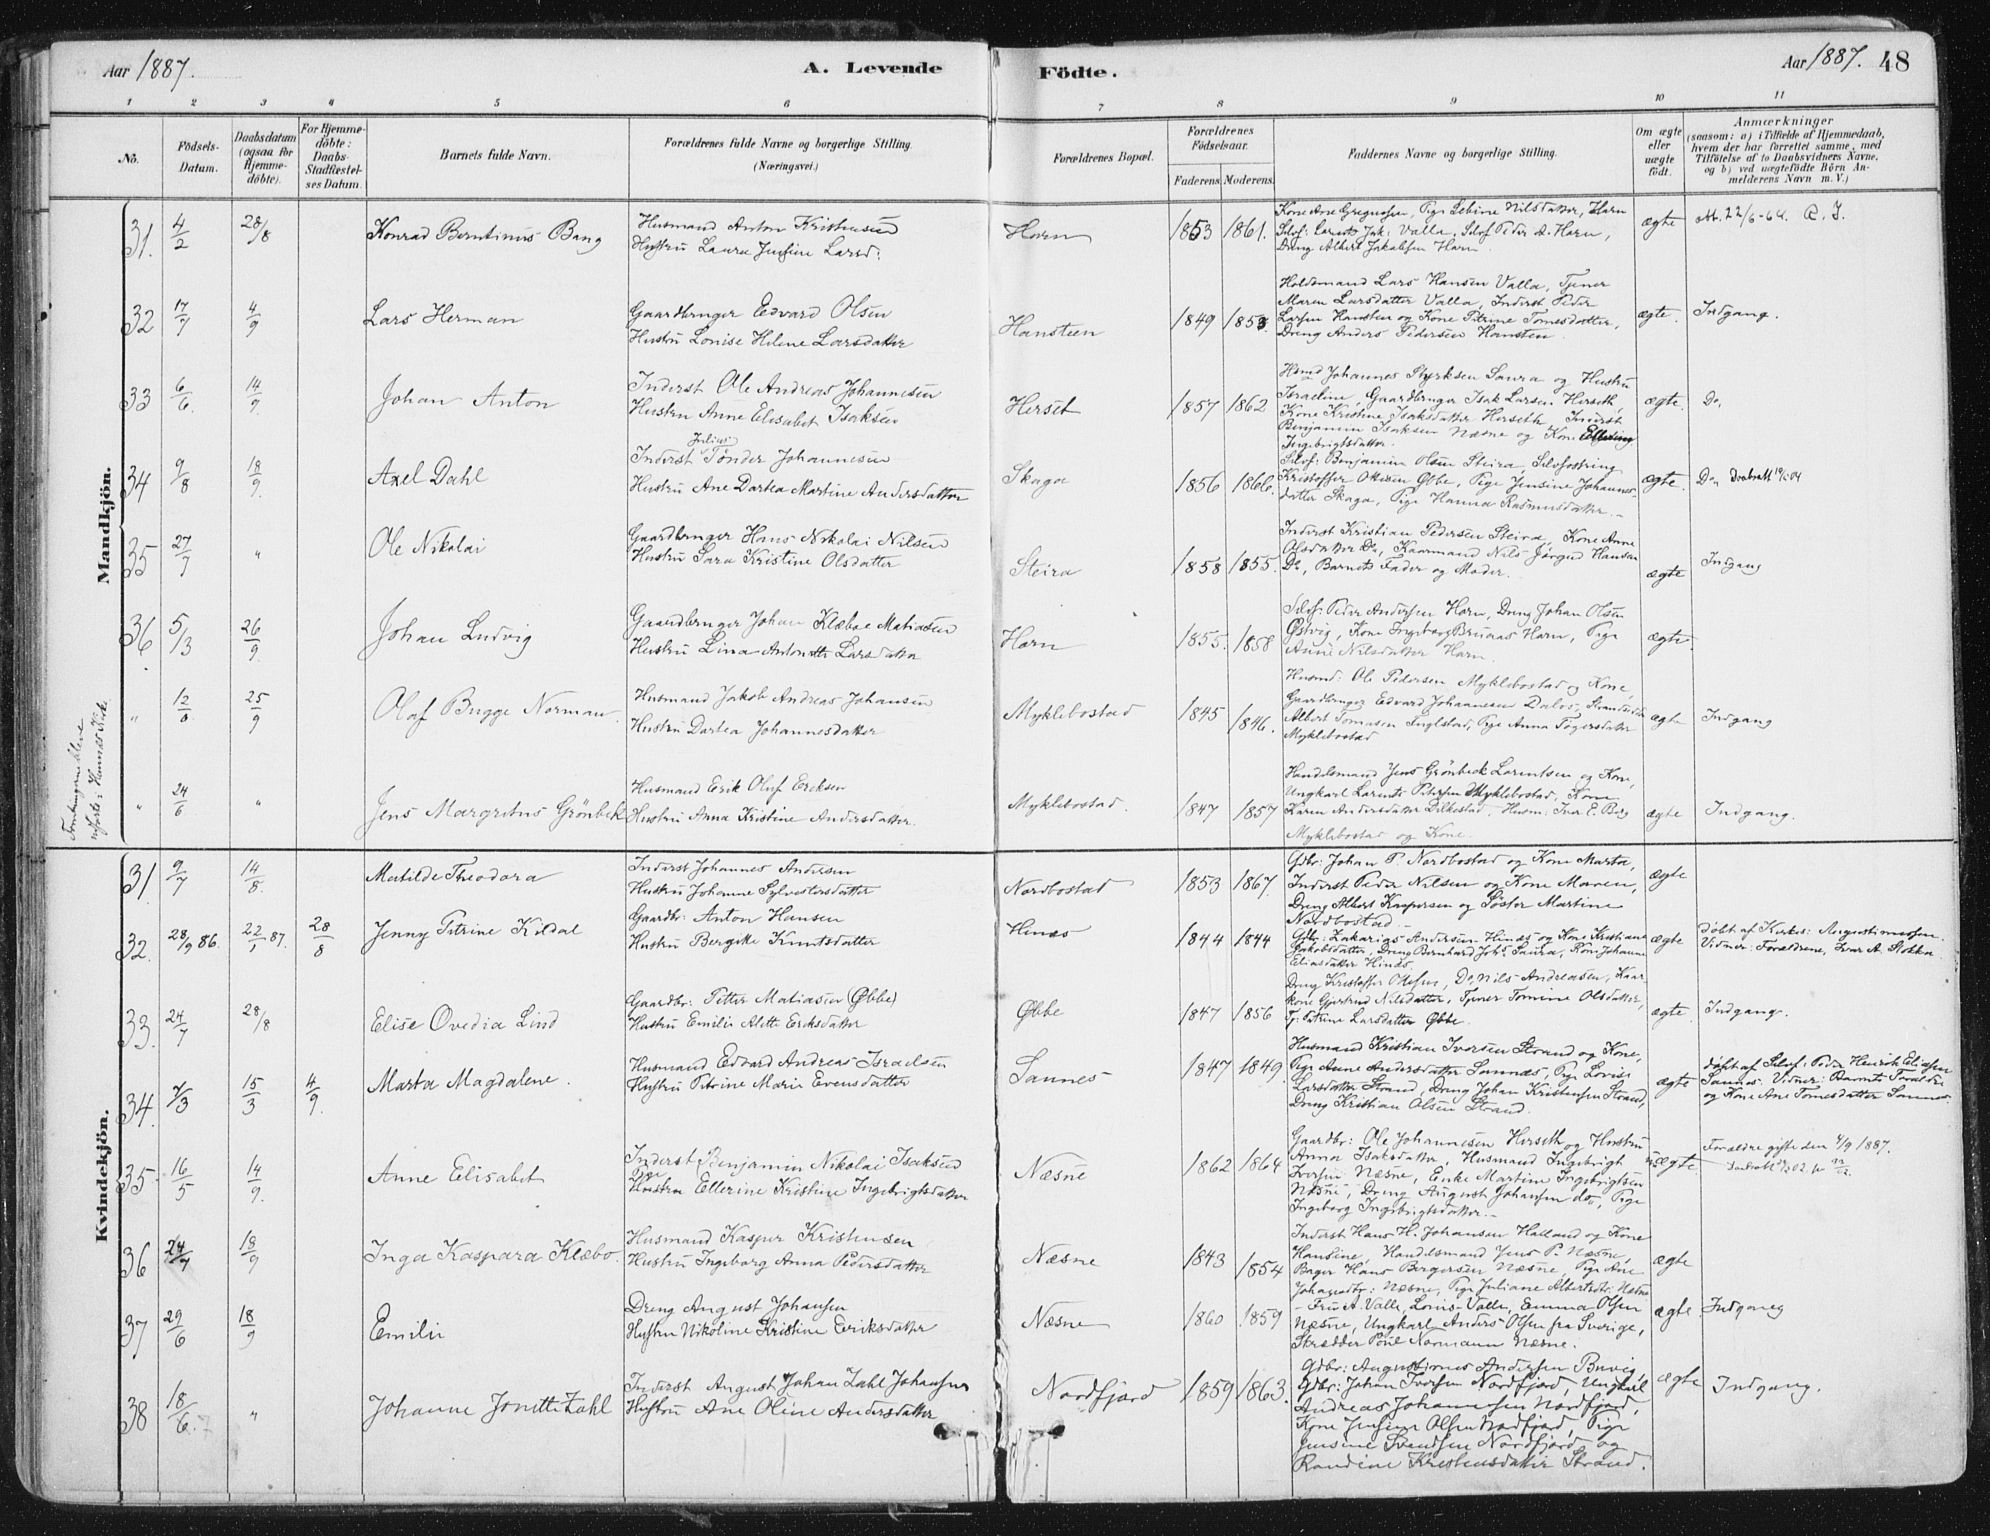 Aar 1887.
A. Levende
Födte.
Aar 1887. 48
1 2 3 4 5 6 7 8 9 10 11
No.
Födsels-Datum.
Daabsdatum (ogsaa för Hjemme-döbte).
For Hjemme-döbte: Daabs-Stadfæstel-ses Datum.
Barnets fulde Navn.
Forældrenes fulde Navne og borgerlige Stilling. (Næringsvei.)
Forældrenes Bopæl.
Forældrenes Födselsaar.
Faderens Moderens.
Faddernes Navne og borgerlige Stilling.
Om ægte eller uægte födt.
Anmærkninger
(saasom: a) i Tilfælde af Hjemmedaab,
hvem der har forrettet samme, med
Tilföielse af to Daabsvidners Navne,
og b) ved uægtefödte Börn An-
melderens Navn m. V.)
Mandkjön.
31. 4/2 28/8 Konrad Berntinus Bang
Husmand Anton Kristensen
Hustru Laura Jensine Larsd:
Horn 1853 1861.
Dreng Albert Jakobsen Horn
ægte
32 17/7 4/9 Lars Herman
Gaardbruger Edvard Olsen
Hustru Lovise Helene Larsdatter
Hansteen 1849 1853.
Holdsmand Lars Hansen Valla, Tjener
Maren Larsdatter Valla, Inderst Peder
Larsen Hansten og Kone Petrine Tomesdatter,
Dreng Anders Pedersen Hansten
ægte. Indgang.
33 6/6. 14/9. Johan Anton
Inderst Ole Andreas Johannesen
Hustru Anne Elisabet Isaksen
Herset 1857 1862
Johannes Styrksen Saura og Hustru
Israeline, Gaardbruger Isak Larsen Herseth,
Kone Kristine Isaksdatter Herseth, Inderst
Benjamin Isaksen Næsne og Kone Ellerine
Ingebrigtsdatter.
ægte. Do,
34 9/8 18/9. Axel Dahl
Inderst Julius Tönder Johannesen
Hustru Ane Dortea Martine Andersdatter
Skaga 1856 1866.
Benjamin Olsen Steira,
Kristoffer Olsen Øbbe, Pige Jensine Johannes-
datter Skaga, Pige Hanna Rasmusdatter.
ægte. Do,
35 27/7 " Ole Nikolai
Gaardbruger Hans Nikolai Nilsen
Hustru Sara Kristine Olsdatter
Steira 1858 1855.
Inderst Kristian Pedersen Steira, Kone Anne
Olsdatter Do, Kaarmand Nils Jörgen Hansen
Do, Barnets Fader og Moder.
ægte Indgang
36. 5/3 26/9. Johan Ludvig
Gaardbruger Johan Klæboe Matiasen
Hustru Lina Antonette Larsdatter
Horn 1855. 1858
Peder Andersen Horn, Dreng Johan Olsen
Østvig, Kone Ingeborg Bruaas Horn, Pige
Anne Nilsdatter Horn.
ægte.
" 12/8 25/9 Olaf Bugge Norman
Husmand Jakob Andreas Johansen
Hustru Dortea Johannesdatter
Myklebostad 1845 1846.
Husmd. Ole Pedersen Myklebostad og Kone,
Gaardbruger Edvard Johannesen
Albert Tomasen Inglstad, Pige Anna
Myklebostad
ægte Indgang
" 24/6 " Jens Margretus Grönbek
Husmand Erik Oluf Eriksen
Hustru Anna Kristine Andersdatter.
Myklebostad. 1847 1857
Handelsmand Jens Grönbeck Lorentsen og Kone,
Ungkarl Lorents Petersen Myklebostad, Kone
Karen Andersdatter Dilkestad, Husm: Iver E. Berg
Myklebostad og Kone.
ægte Indgang.
Kvindekjön.
31. 9/7 14/8. Matilde Theodora
Inderst Johannes Andersen
Hustru Johanne Sylvestersdatter
Nordbostad 1853 1867.
Gdbr: Johan P. Nordbostad og Kone Marta,
Inderst Peder Nilsen og Kone Maren,
Dreng Albert Kaspersen og Söster Martine
Nordbostad.
ægte
32. 28/9 86. 22/1 87. 28/8 Jenny Petrine Kildal
Gaardbr: Anton Hansen
Hustru Bergitte Knutsdatter
Hinæs 1844 1844
Gdbr: Zakarias Andersen Hinæs og Kone Kristiane
Jakobsdatter, Dreng Bernhard Joh. Saura, Kone Johanne
Eliasdatter Hinæs.
ægte
döbt af Kirkes: Augustinussen.
Vidner: Forældrene, Ivar A. Stokka
33. 24/7 28/8 Elise Ovedia Lind
Gaardbr: Petter Matiasen (Øbbe)
Hustru Emilie Alette Eriksdatter
Øbbe 1847 1856
Dreng Kristoffer Olsen, Do, Nils Andreasen, Kaar
kone Gjertrud Nilsdatter, Tjener Tomine Olsdatter,
Tj: Petrine Larsdatter Øbbe.
ægte. Indgang.
34. 7/3 15/3 4/9. Marta Magdalene.
Husmand Edvard Andreas Israelsen
Hustru Petrine Marie Evensdatter
Sannes 1847 1849.
Husmand Kristian Iversen Strand og Kone,
Pige Anne Andersdatter Sannæs, Pige Lovise
Larsdatter Strand, Dreng Johan Kristensen Strand,
Dreng Kristian Olsen Strand.
ægte
döbt af Selvf: Peder Henrik Eliasen
Sannes. Vidner: Barnets Forældre
og Kone Ane Tomesdatter Sannes
35. 16/5 14/9. Anne Elisabet
Inderst Benjamin Nikolai Isaksen
Pige Hustru Ellerine Kristine Ingebrigtsdatter
Næsne 1862 1864
Gaardbr: Ole Johannesen Herseth og Hustru
Anna Isaksdatter, Husmand Ingebrigt
Iversen Næsne, Enke Martine Ingebrigtsen
Næsne, Dreng August Johansen do, Pige
Ingeborg Ingebrigtsdatter.
uægte.
Forældre gifte den 4/9 1887.
36 24/7 18/9 Inga Kaspara Klæbo.
Husmand Kasper Kristensen
Hustru Ingeborg Anna Pedersdatter
Næsne 1843 1854
Inderst Hans H. Johansen Halland og Kone
Hansine, Handelsmand Jens P. Næsne,
Bager Hans Bergersen Næsne, Pige Ane
Næsne, Pige Juliane Albertsdtr: Næsne
ægte
37 29/6 18/9 Emilie
Dreng August Johansen
Hustru Nikoline Kristine Eriksdatter
Næsne 1860 1859
Fru A. Valle, Lovis Valle, Emma Olsen
Næsne, Ungkarl Anders Olsen fra Sverige,
Skrædder Poul Normann Næsne.
ægte. Indgang
38 18/6 " Johanne Jonette Zahl
Inderst August Johan Zahl Johansen
Hustru Ane Oline Andersdatter
Nordfjord 1859 1863.
Gdbr: Augustinus Andersen Buvig
Gdbr: Johan Iversen Nordfjord, Ungkarl
Andreas Johannesen Nordfjord,
Kone Jensine Olsen Nordfjord, Pige
Jensine Svendsen Nordfjord og
Randine Kristensdatter Strand.
ægte Indgang.